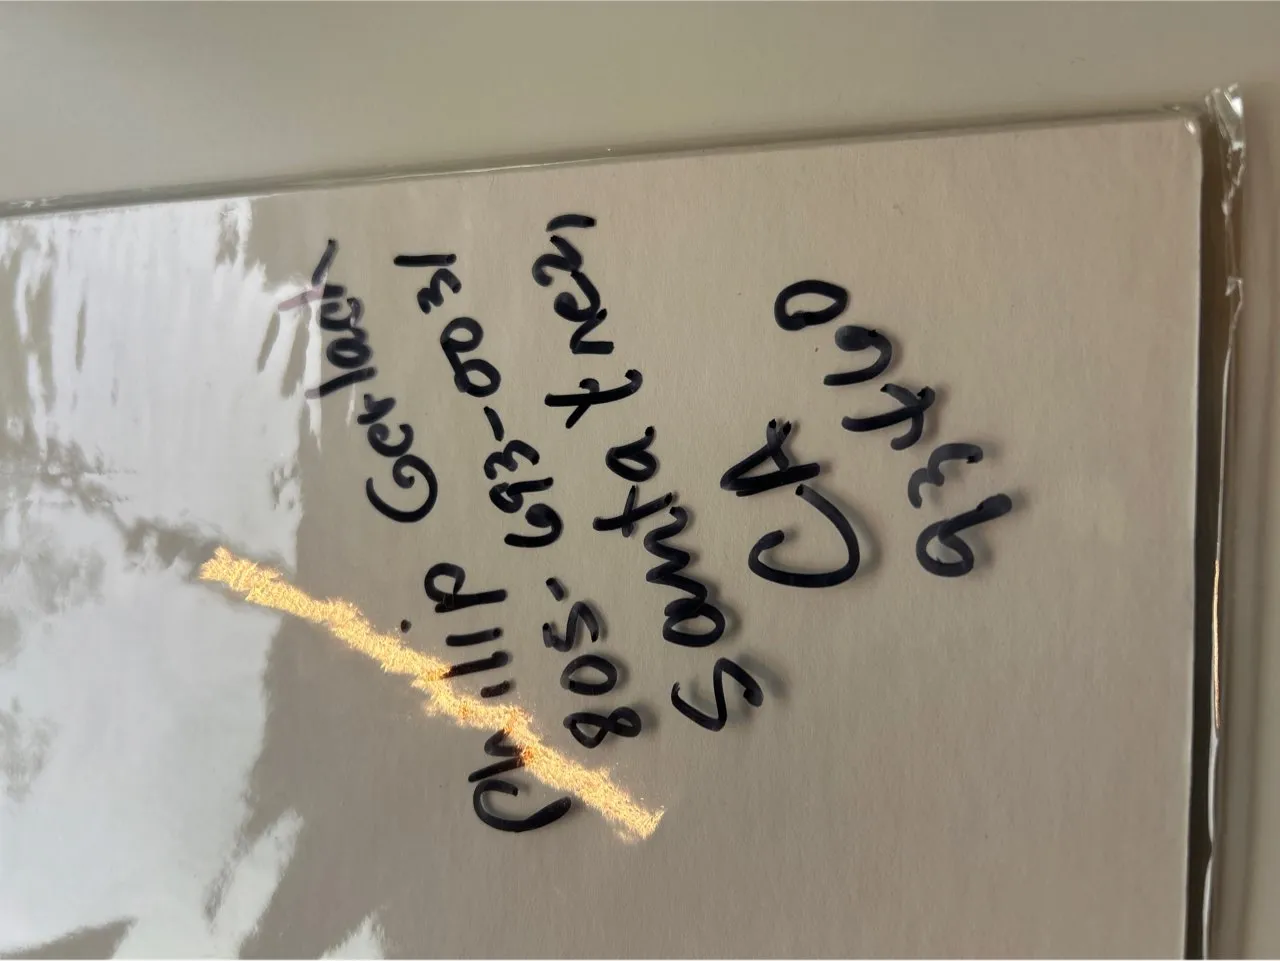 Phillip Gerlach
805-693-0031
Santa Ynez
CA
93460